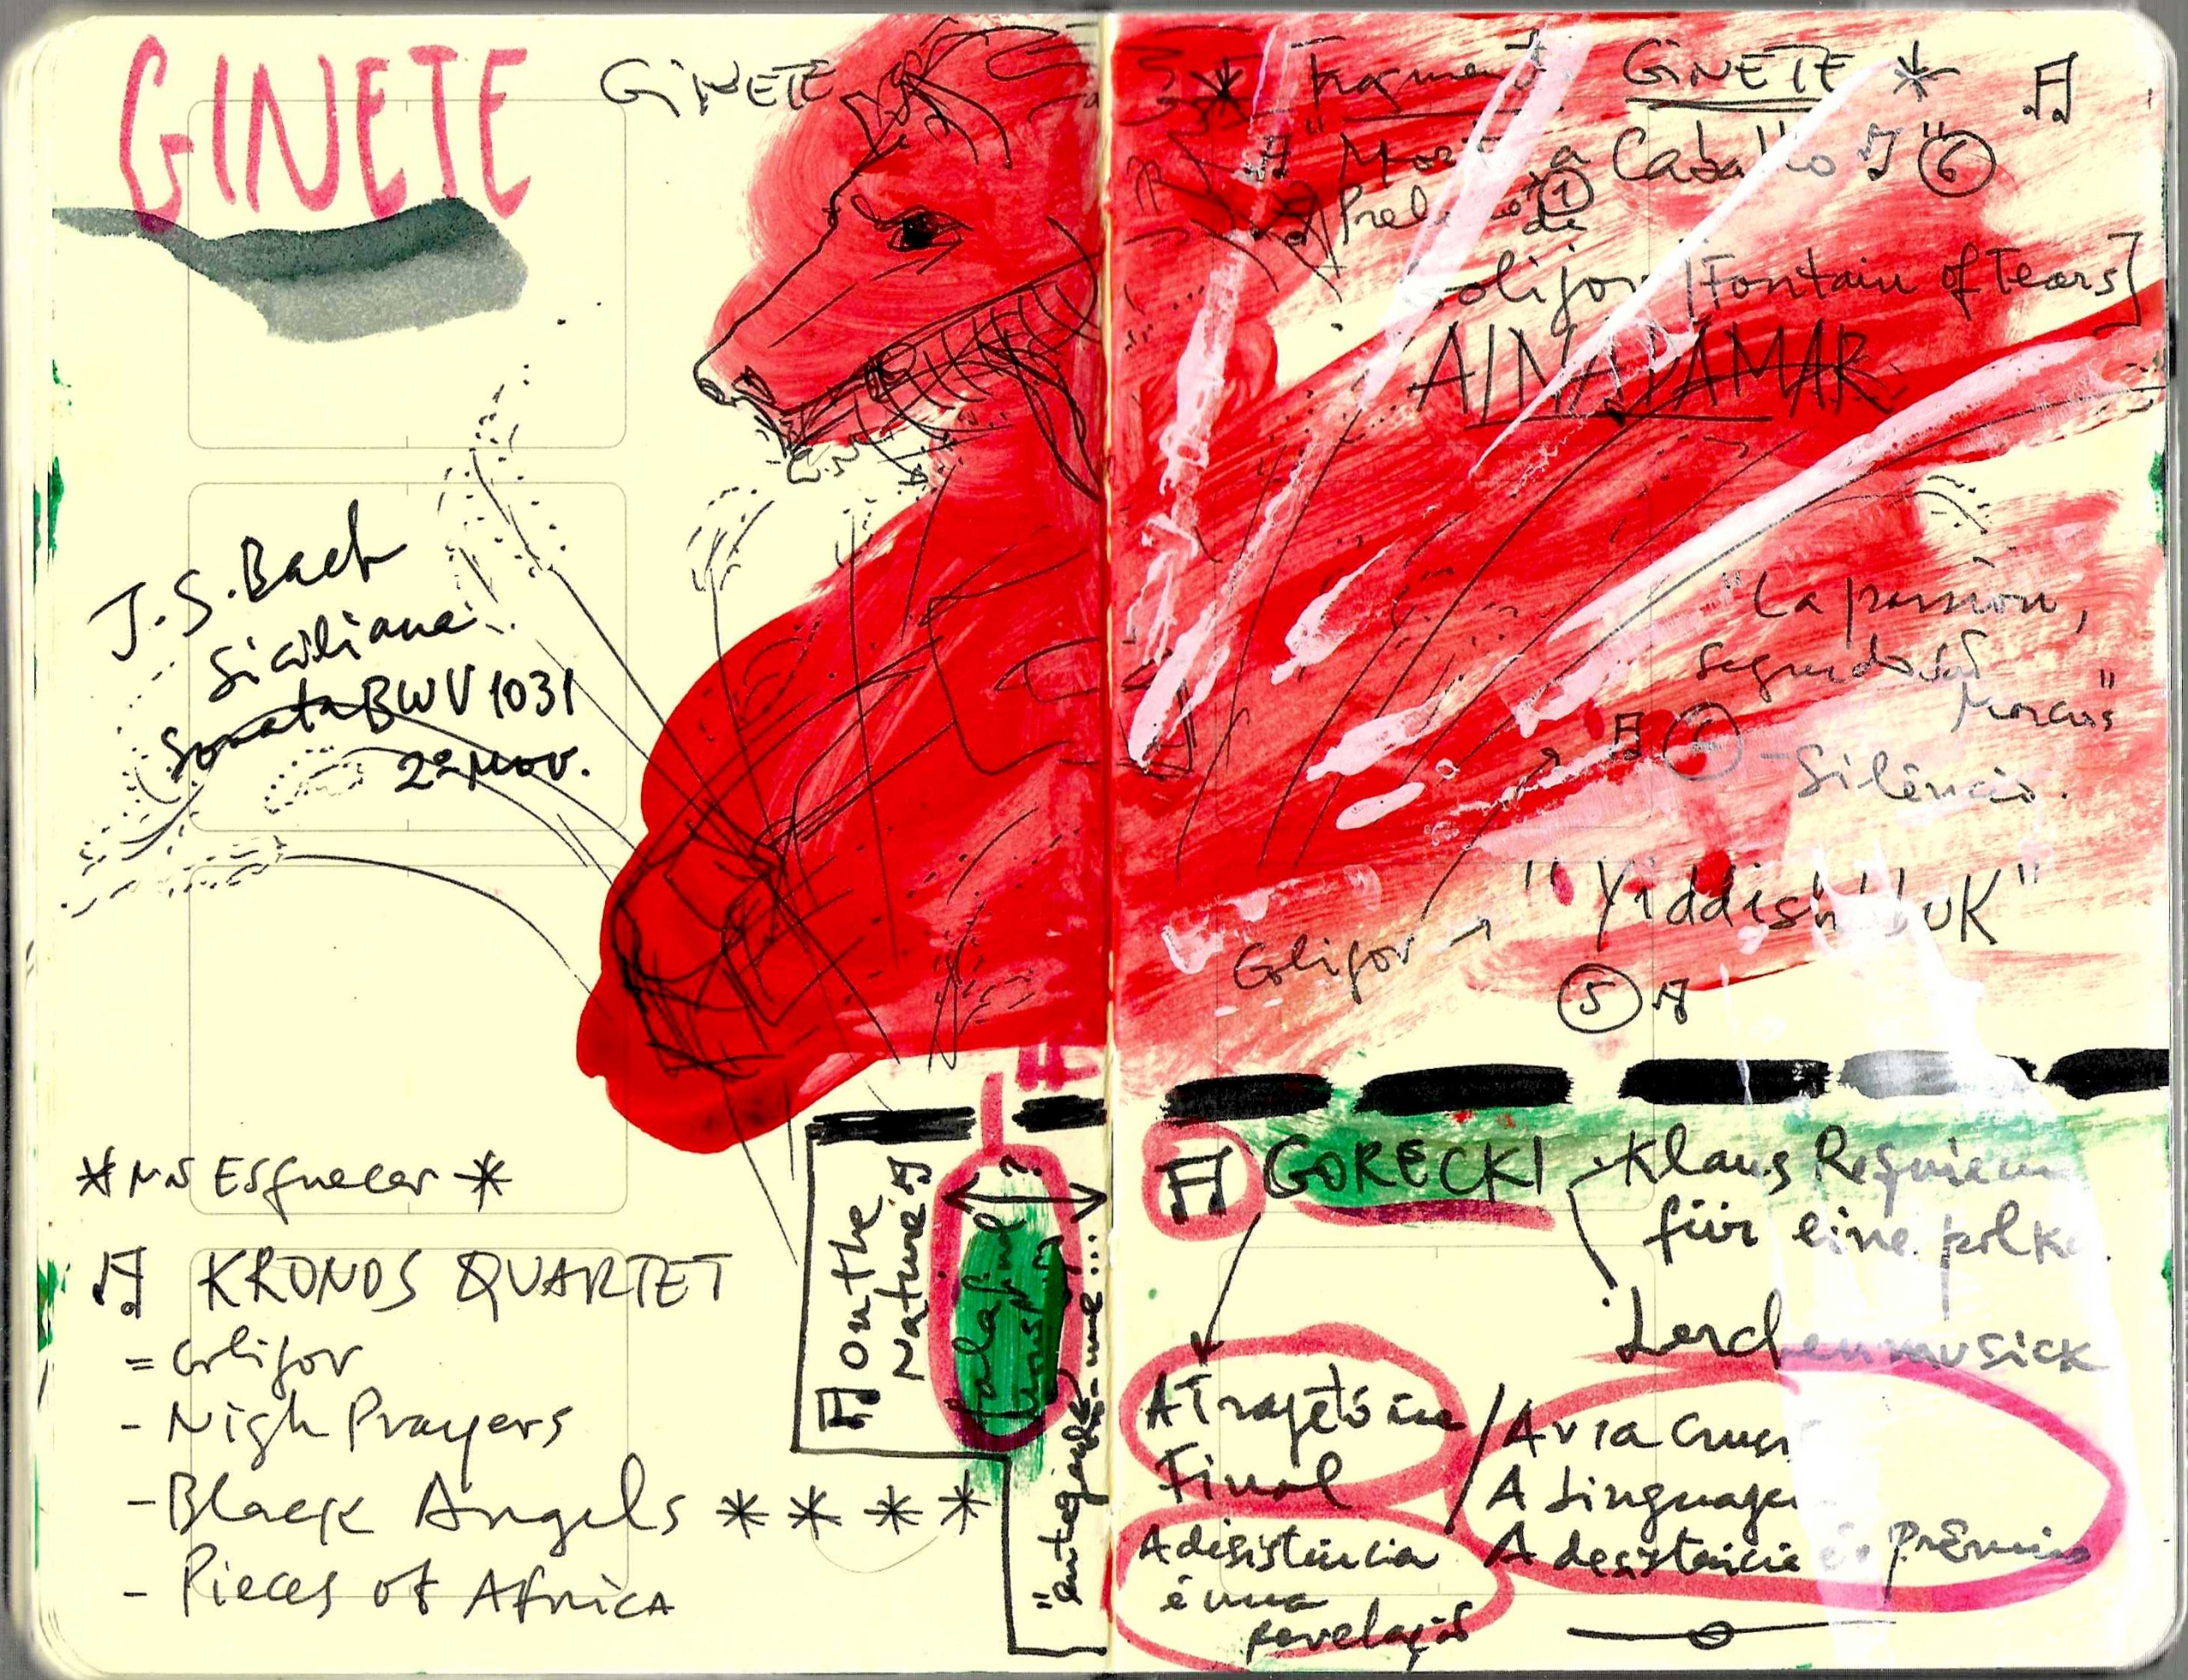 GINETE
GINETE
J.S.Bach
Siciliana
Sonata BWV 1031
2º Mov.
*Nñ Esquecer*
KRONOS QUARTET
= Golijov
- Nigh Prayers
- Black Angels ****
- Pieces of Africa
on the
Nature
?
"entreguei-me...
* GINETE *
Caballo 6"
1
de
[Fontain of Tears]
AINADAMAR
"La passion,
segundo São
Marcos"
- Silêncio.
"Yiddishbuk"
Golijov →
5
GORECKI
Klaus Requiem
für eine polka
Lerchenmusick
A Trajetória
Final
A desistência
é uma
revelação
/ A via Crucis
A Linguagem
A desistência é o Prêmio